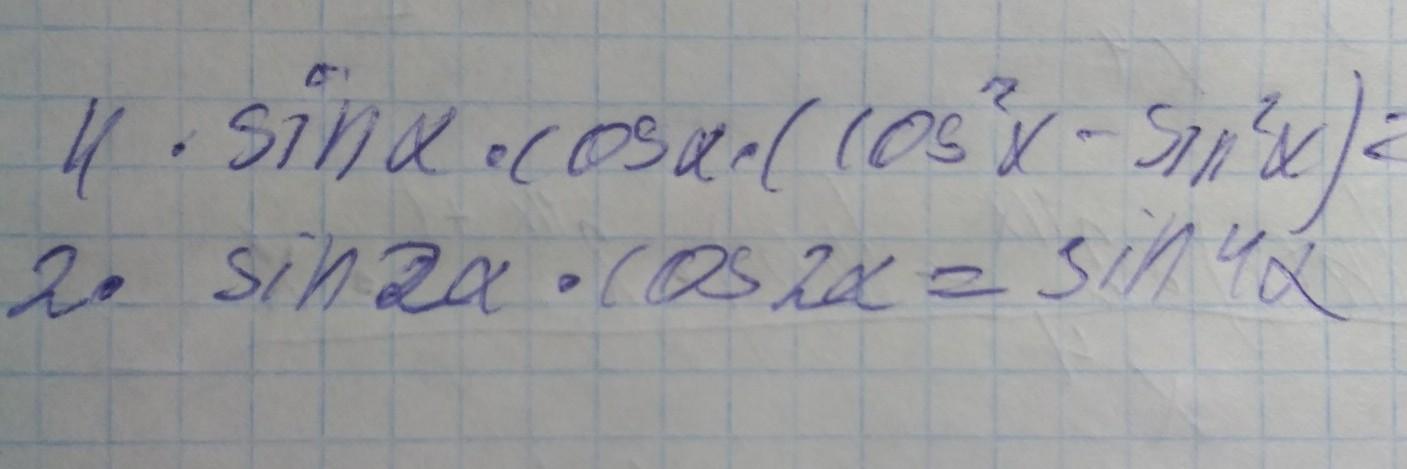 4 · sinα · cosα · (cos²α - sin²α) =
2 · sin2α · cos2α = sin4α